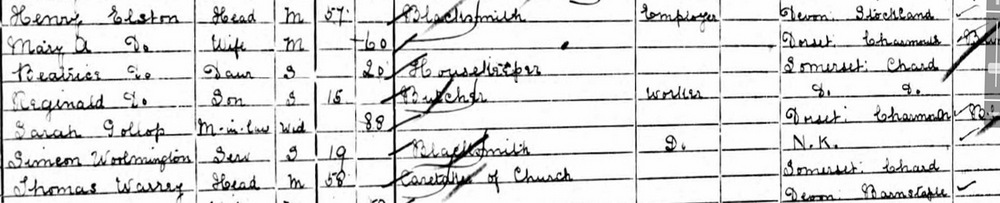 Henry Elston Head M 57 Blacksmith Employer Devon: Stockland
Mary A Do. Wife M 60 Dorset: Charmouth
Beatrice Do. Daur S 20 Housekeeper Somerset: Chard
Reginald Do. Son S 15 Butcher Worker D. D.
Sarah Gollop M-in-law Wid 88 Dorset: Charmouth
Simeon Woolmington Serv S 19 Blacksmith D. N.K.
Thomas Warrey Head M 58 Caretaker of Church Somerset: Chard
Devon: Barnstaple